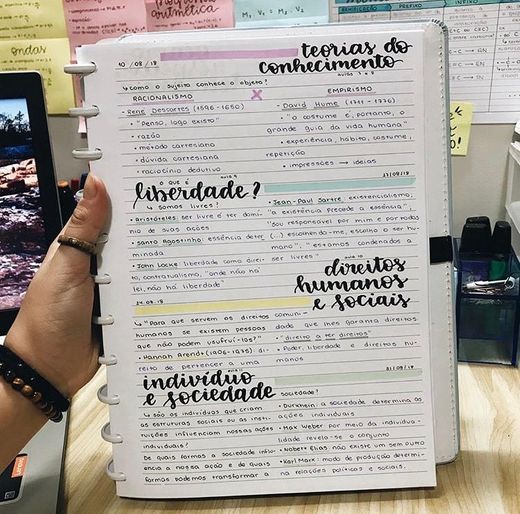 ondas
aritmética
M₁V₁ = M₂V₂
PREFIXO
10/08/18
teorias do
conhecimento
aula 7 e 8
↳ como o sujeito conhece o objeto?
RACIONALISMO
• René Descartes (1596-1650)
• "Penso, logo existo"
• razão
• método cartesiano
• dúvida cartesiana
• raciocínio dedutivo
X
EMPIRISMO
• David Hume (1711-1776)
• "o costume é, portanto, o
grande guia da vida humana"
• experiência, hábito, costume,
repetição
• impressões → ideias
17/08/18
o que é
aula 9
liberdade?
↳ somos livres?
• Aristóteles: ser livre é ter domí-
nio de suas ações
• Santo Agostinho: essência deter-
minada
• John Locke: liberdade como direi-
to, contratualismo, "onde não há
lei, não há liberdade"
• Jean-Paul Sartre: existencialismo,
"a existência precede a essência",
"sou responsável por mim e por todos
(...) escolhendo-me, escolho o ser hu-
mano", "estamos condenados a
ser livres"
direitos
humanos
e sociais
aula 10
24.08.18
↳ "Para que servem os direitos
humanos se existem pessoas
que não podem usufruí-los?"
• Hannah Arendt (1906-1975) di-
reito de pertencer a uma
comuni-
dade que nos garanta direitos
• "direito a ter direitos"
• Poder, liberdade e direitos hu-
manos
31/08/18
indivíduo
e sociedade
↳ são os indivíduos que criam
as estruturas sociais ou as insti-
tuições influenciam nossas ações
individuais?
De quais formas a sociedade influ-
encia a nossa ação e de quais
formas podemos transformar a
sociedade?
• Durkheim: a sociedade determina as
ações individuais
• Max Weber: por meio da individua-
lidade revela-se o conjunto
• Norbert Elias: não existe um sem outro
• Karl Marx: modo de produção determi-
na relações políticas e sociais.